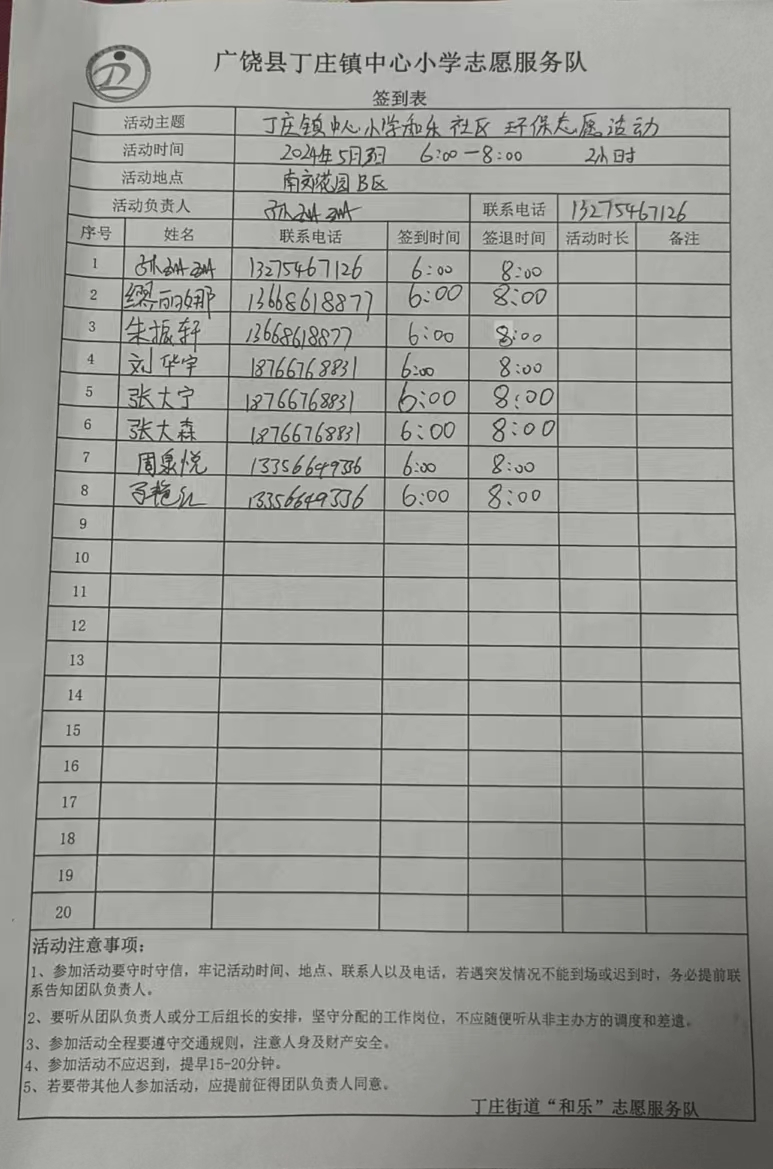 广饶县丁庄镇中心小学志愿服务队
签到表
活动主题 丁庄镇中心小学和乐社区环保志愿活动
活动时间 2024年5月3日 6:00-8:00 2小时
活动地点 南郊花园B区
活动负责人 孙珊珊 联系电话 13275467126
序号 姓名 联系电话 签到时间 签退时间 活动时长 备注
1 孙珊珊 13275467126 6:00 8:00
2 缪丽娜 13668618877 6:00 8:00
3 朱振轩 13668618877 6:00 8:00
4 刘华宇 18766768831 6:00 8:00
5 张大宁 18766768831 6:00 8:00
6 张大森 18766768831 6:00 8:00
7 周泉悦 13356649336 6:00 8:00
8 13356649336 6:00 8:00
9
10
11
12
13
14
15
16
17
18
19
20
活动注意事项：
1、参加活动要守时守信，牢记活动时间、地点、联系人以及电话，若遇突发情况不能到场或迟到时，务必提前联
系告知团队负责人。
2、要听从团队负责人或分工后组长的安排，坚守分配的工作岗位，不应随便听从非主办方的调度和差遣。
3、参加活动全程要遵守交通规则，注意人身及财产安全。
4、参加活动不应迟到，提早15-20分钟。
5、若要带其他人参加活动，应提前征得团队负责人同意。
丁庄街道“和乐”志愿服务队